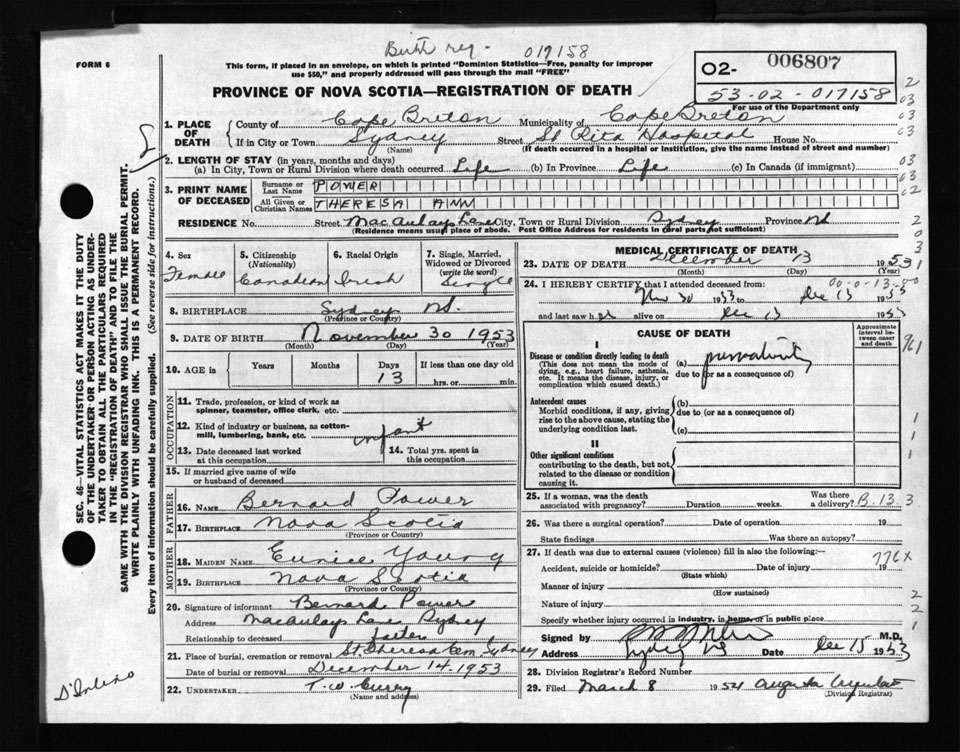 Birth reg - 017158
FORM 6
This form, if placed in an envelope, on which is printed "Dominion Statistics—Free, penalty for improper
use $50," and properly addressed will pass through the mail "FREE"
O2- 006807
53-02-017158
For use of the Department only
PROVINCE OF NOVA SCOTIA—REGISTRATION OF DEATH
1. PLACE OF DEATH
County of Cape Breton Municipality of Cape Breton
If in City or Town Sydney Street St Rita Hospital House No.
(Name) (If death occurred in a hospital or institution, give the name instead of street and number)
2. LENGTH OF STAY (in years, months and days)
(a) In City, Town or Rural Division where death occurred Life (b) In Province Life (c) In Canada (if immigrant)
3. PRINT NAME OF DECEASED
Surname or Last Name POWER
All Given or Christian Names THERESA ANN
RESIDENCE No. Street MacAulay Lane City, Town or Rural Division Sydney Province NS
(Residence means usual place of abode. Post Office Address for residents in rural parts not sufficient)
4. Sex Female
5. Citizenship (Nationality) Canadian
6. Racial Origin Irish
7. Single, Married, Widowed or Divorced (write the word) Single
8. BIRTHPLACE Sydney NS.
(Province or Country)
9. DATE OF BIRTH November 30 1953
(Month) (Day) (Year)
10. AGE in Years Months Days 13 If less than one day old hrs. or min.
OCCUPATION
11. Trade, profession, or kind of work as
spinner, teamster, office clerk, etc.
12. Kind of industry or business, as cotton-
mill, lumbering, bank, etc. infant
13. Date deceased last worked
at this occupation
14. Total yrs. spent in
this occupation
15. If married give name of wife
or husband of deceased
FATHER
16. NAME Bernard Power
17. BIRTHPLACE Nova Scotia
(Province or Country)
MOTHER
18. MAIDEN NAME Eunice Young
19. BIRTHPLACE Nova Scotia
(Province or Country)
20. Signature of informant Bernard Power
Address MacAulays Lane Sydney
Relationship to deceased father
21. Place of burial, cremation or removal St. Theresa Cem. Sydney
Date of burial or removal December 14. 1953
22. UNDERTAKER T. W. Curry
(Name and address)
MEDICAL CERTIFICATE OF DEATH
23. DATE OF DEATH December 13 1953
(Month) (Day) (Year)
00-0-13-00
24. I HEREBY CERTIFY that I attended deceased from:
Nov 30 1953 to Dec 13 1953
and last saw her alive on Dec 13 1953
CAUSE OF DEATH
Approximate interval between onset and death
I
Disease or condition directly leading to death
(This does not mean the mode of
dying, e.g., heart failure, asthenia,
etc. It means the disease, injury, or
complication which caused death.)
(a) prematurity
due to (or as a consequence of)
Antecedent causes
Morbid conditions, if any, giving
rise to the above cause, stating the
underlying condition last.
(b)
due to (or as a consequence of)
(c)
II
Other significant conditions
contributing to the death, but not
related to the disease or condition
causing it.
25. If a woman, was the death
associated with pregnancy? Duration weeks. Was there a delivery? B. 13. 3
26. Was there a surgical operation? Date of operation 19
State findings Was there an autopsy?
27. If death was due to external causes (violence) fill in also the following:—
776X
Accident, suicide or homicide? Date of injury 19
(State which)
Manner of injury
(How sustained)
Nature of injury
Specify whether injury occurred in industry, in home, or in public place
Signed by M.D.
Address Sydney NS Date Dec 15 1953
28. Division Registrar's Record Number
29. Filed March 8 1954 Augusta
(Division Registrar)
SEC. 46—VITAL STATISTICS ACT MAKES IT THE DUTY
OF THE UNDERTAKER OR PERSON ACTING AS UNDER-
TAKER TO OBTAIN ALL THE PARTICULARS REQUIRED
IN THE "REGISTRATION OF DEATH" AND TO FILE THE
SAME WITH THE DIVISION REGISTRAR WHO SHALL ISSUE THE BURIAL PERMIT.
WRITE PLAINLY WITH UNFADING INK. THIS IS A PERMANENT RECORD.
Every item of information should be carefully supplied. (See reverse side for instructions.)